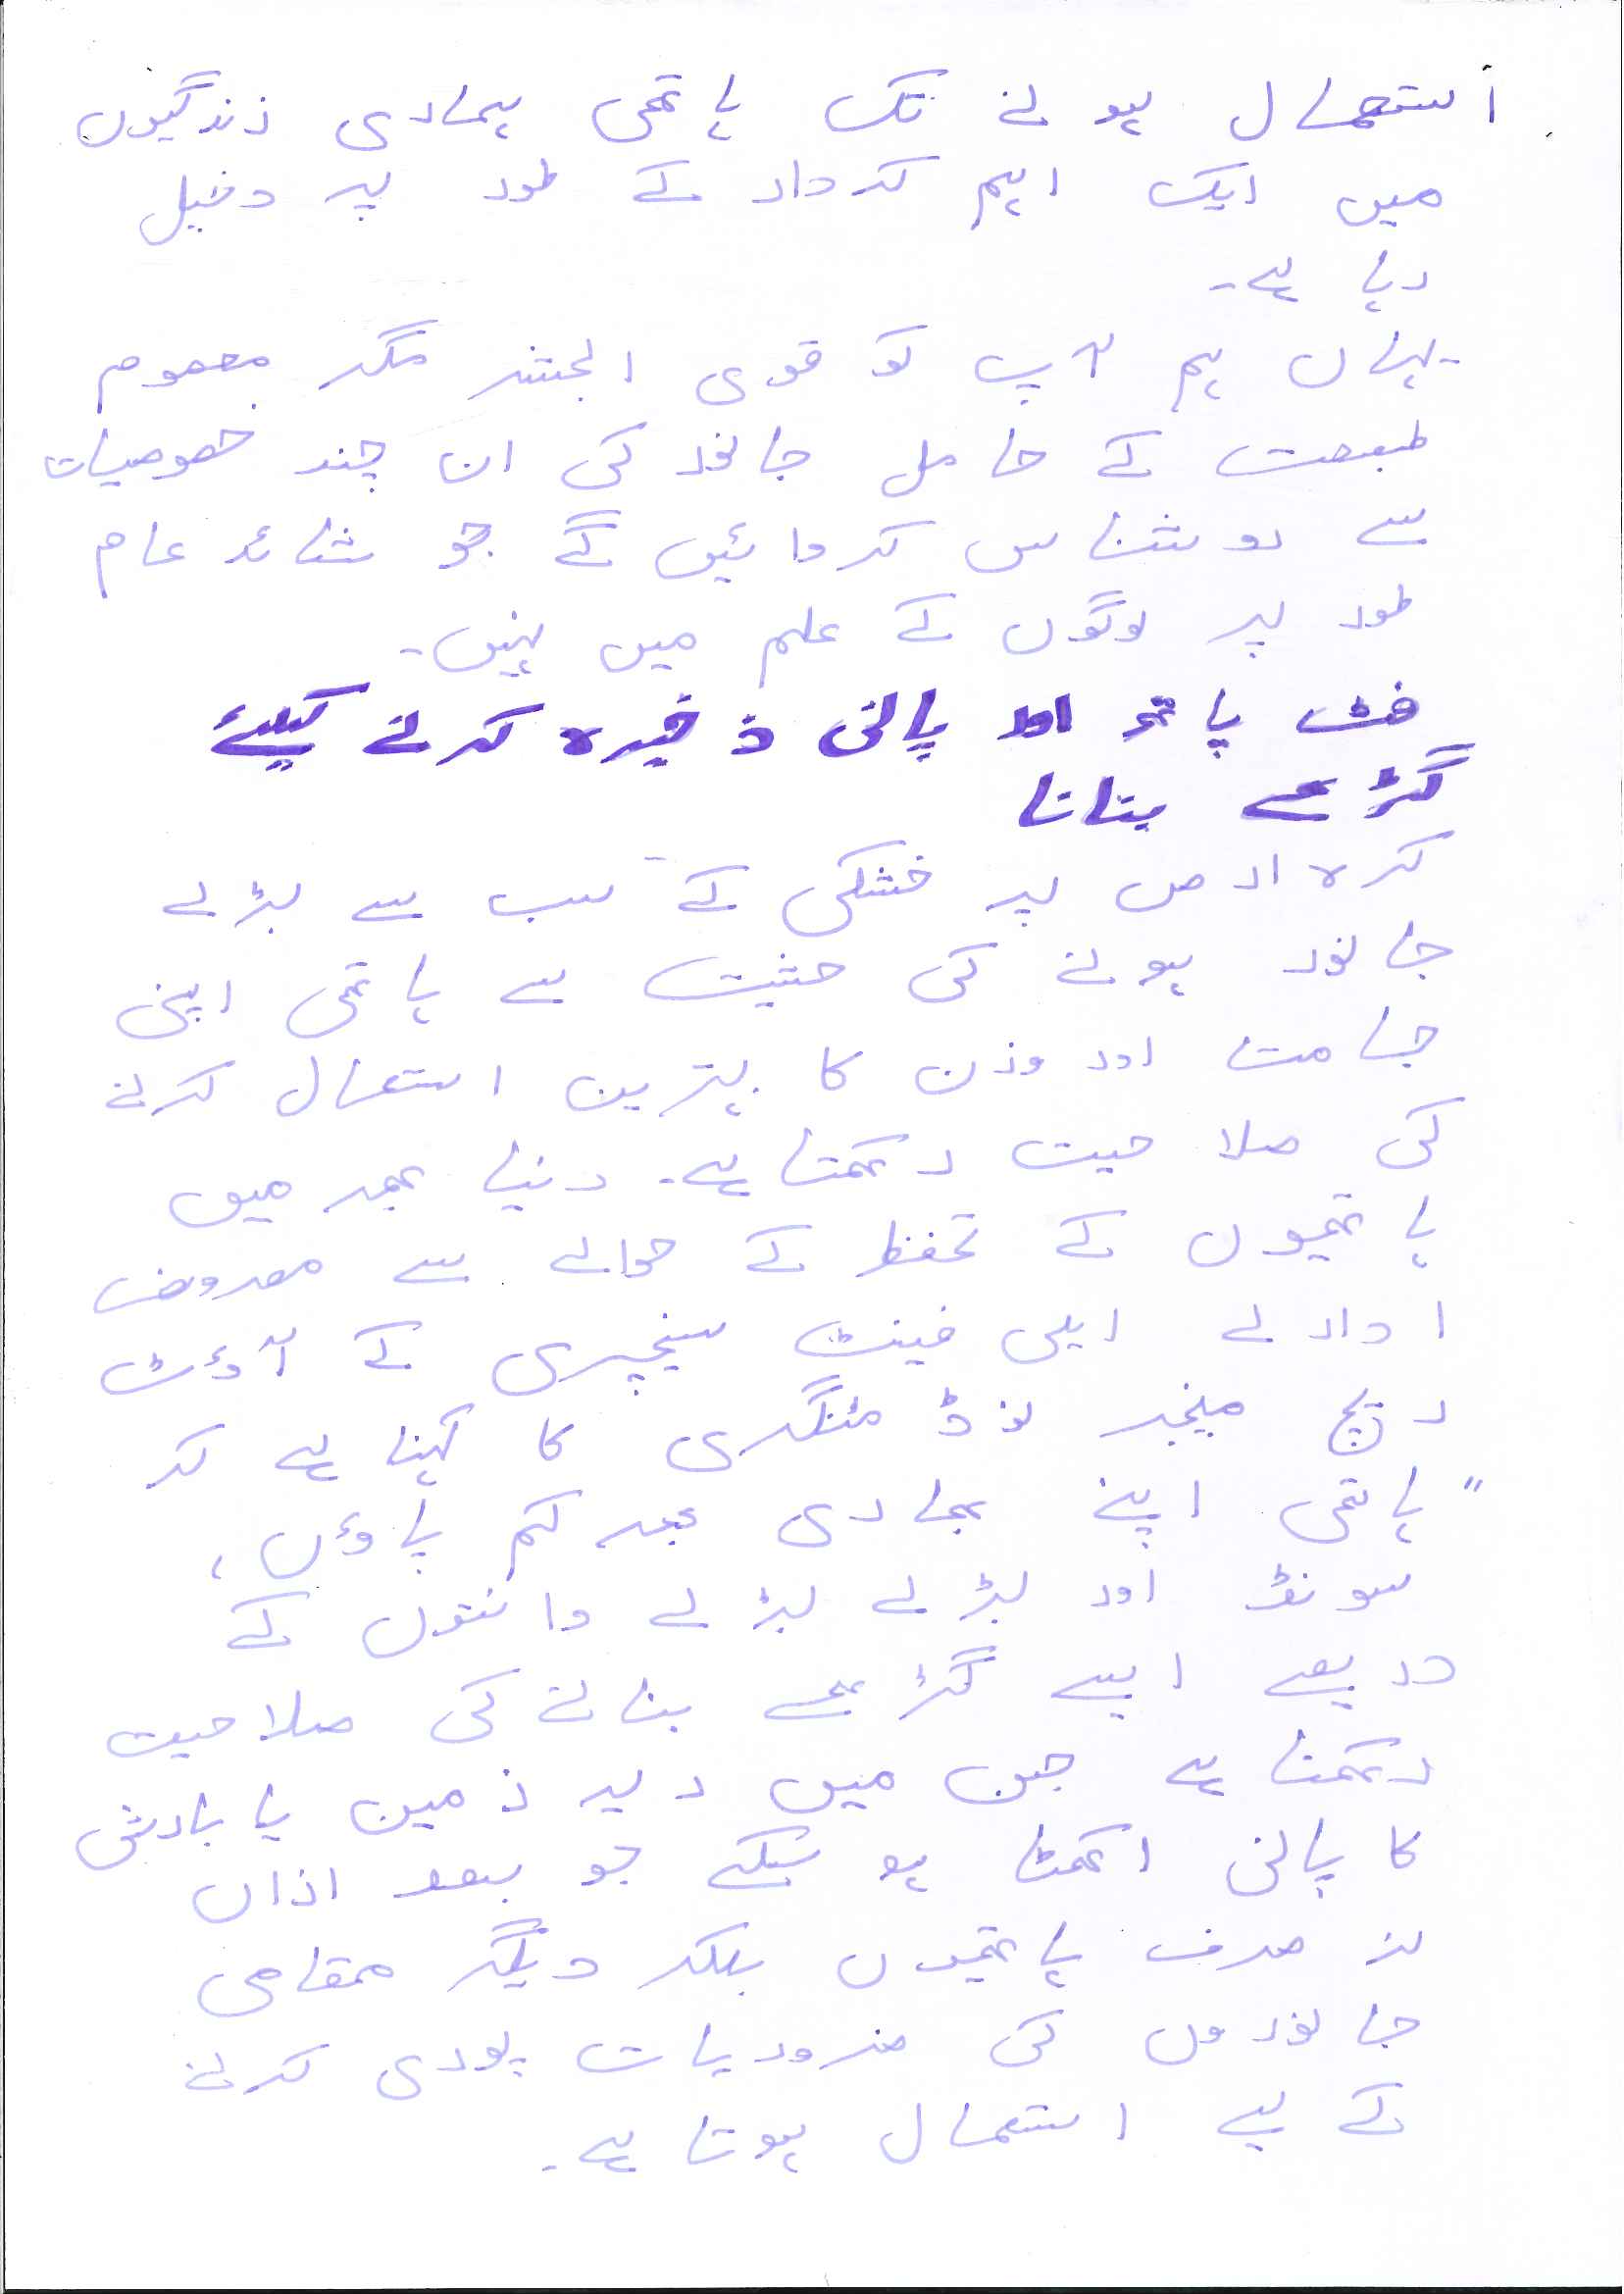 استعمال ہونے تک ہاتھی ہماری زندگیوں
میں ایک اہم کردار کے طور پر دخیل
رہا ہے۔
یہاں ہم آپ کو قوی الجثہ مگر معصوم
طبیعت کے حامل جانور کی ان چند خصوصیات
سے روشناس کروائیں گے جو شائد عام
طور پر لوگوں کے علم میں نہیں۔
فٹ پاتھ اور پانی ذخیرہ کرنے کیلئے
گڑھے بنانا
کرہ ارض پر خشکی کے سب سے بڑے
جانور ہونے کی حثیت سے ہاتھی اپنی
جسامت اور وزن کا بہترین استعمال کرنے
کی صلاحیت رکھتا ہے۔ دنیا بھر میں
ہاتھیوں کے تحفظ کے حوالے سے معروف
ادارے ایلی فینٹ سینچری کے آؤٹ
ریچ مینجر ٹوڈ مٹنگری کا کہنا ہے کہ
"ہاتھی اپنے بھاری بھر کم پاوؤں،
سونڈ اور بڑے بڑے دانتوں کے
ذریعے ایسے گڑھے بنانے کی صلاحیت
رکھتا ہے جن میں زیر زمین یا بارش
کا پانی اکھٹا ہو سکے جو بعد ازاں
نہ صرف ہاتھیوں بلکہ دیگر مقامی
جانوروں کی ضروریات پوری کرنے
کے لیے استعمال ہوتا ہے۔